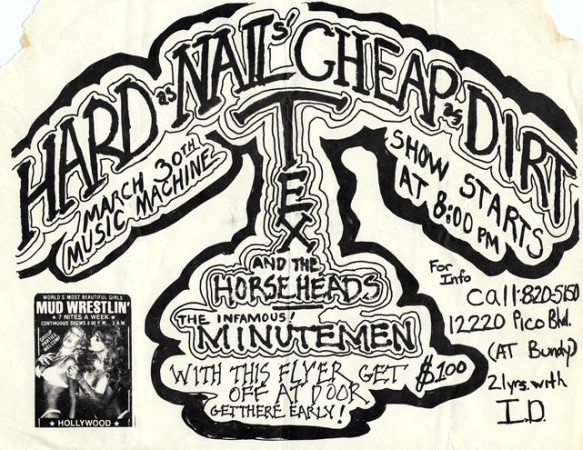 HARD as NAILS' CHEAP as DIRT
MARCH 30TH
MUSIC MACHINE
SHOW STARTS
AT 8:00 PM
TEX
AND THE
HORSEHEADS
THE INFAMOUS!
MINUTEMEN
WITH THIS FLYER GET $1.00
OFF AT DOOR
GET THERE EARLY!
For
Info
Call:820-5150
12220 Pico Blvd.
(AT Bundy)
21yrs. with
I.D.
WORLD'S MOST BEAUTIFUL GIRLS
MUD WRESTLIN'
★ 7 NITES A WEEK ★
CONTINUOUS SHOWS 8:00 P.M. - 2 A.M.
GROUP
PARTIES
WELCOME
★ HOLLYWOOD ★